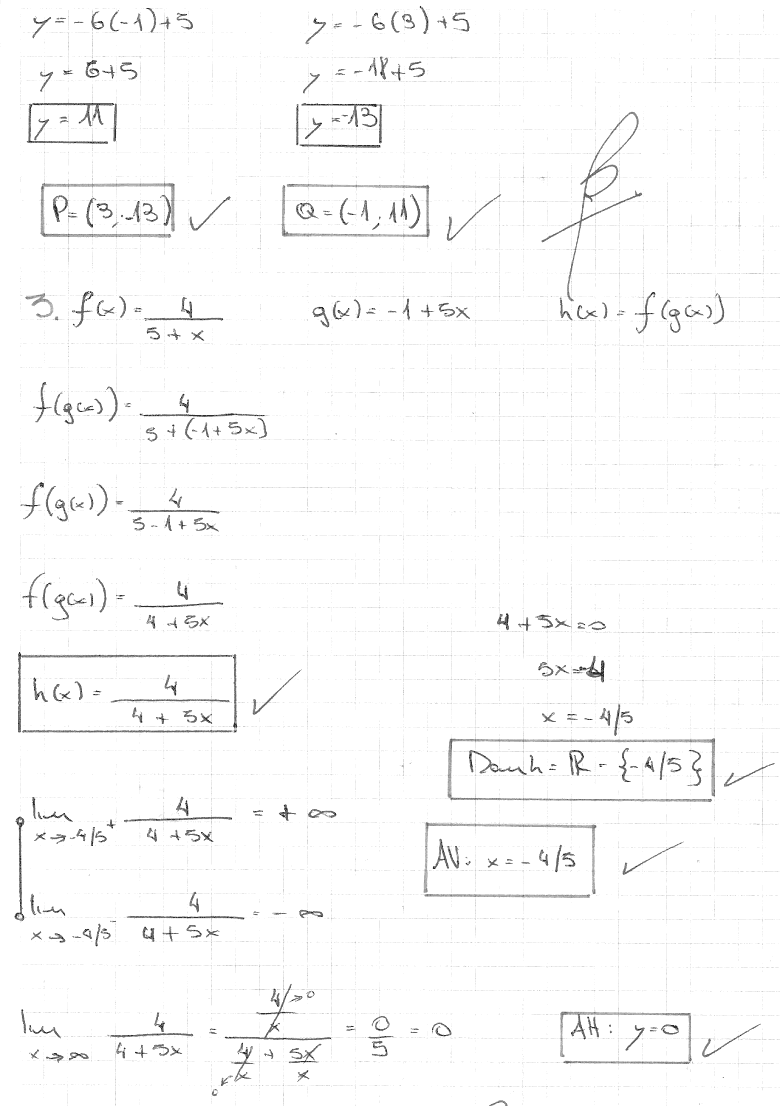 y = -6(-1)+5 y = -6(3)+5
y = 6+5 y = -18+5
y = 11 y = -13
P = (3; -13) ✓ Q = (-1; 11) ✓
3. f(x) = 4/(5 + x) g(x) = -1 + 5x h(x) = f(g(x))
f(g(x)) = 4/(5 + (-1 + 5x))
f(g(x)) = 4/(5 - 1 + 5x)
f(g(x)) = 4/(4 + 5x)
4 + 5x = 0
h(x) = 4/(4 + 5x) ✓
5x = -4
x = -4/5
Dom h = ℝ - {-4/5} ✓
lim x→-4/5⁺ 4/(4 + 5x) = +∞
AV: x = -4/5 ✓
lim x→-4/5⁻ 4/(4 + 5x) = -∞
lim x→∞ 4/(4 + 5x) = (4/x →0)/(4/x →0 + 5x/x) = 0/5 = 0 AH: y = 0 ✓